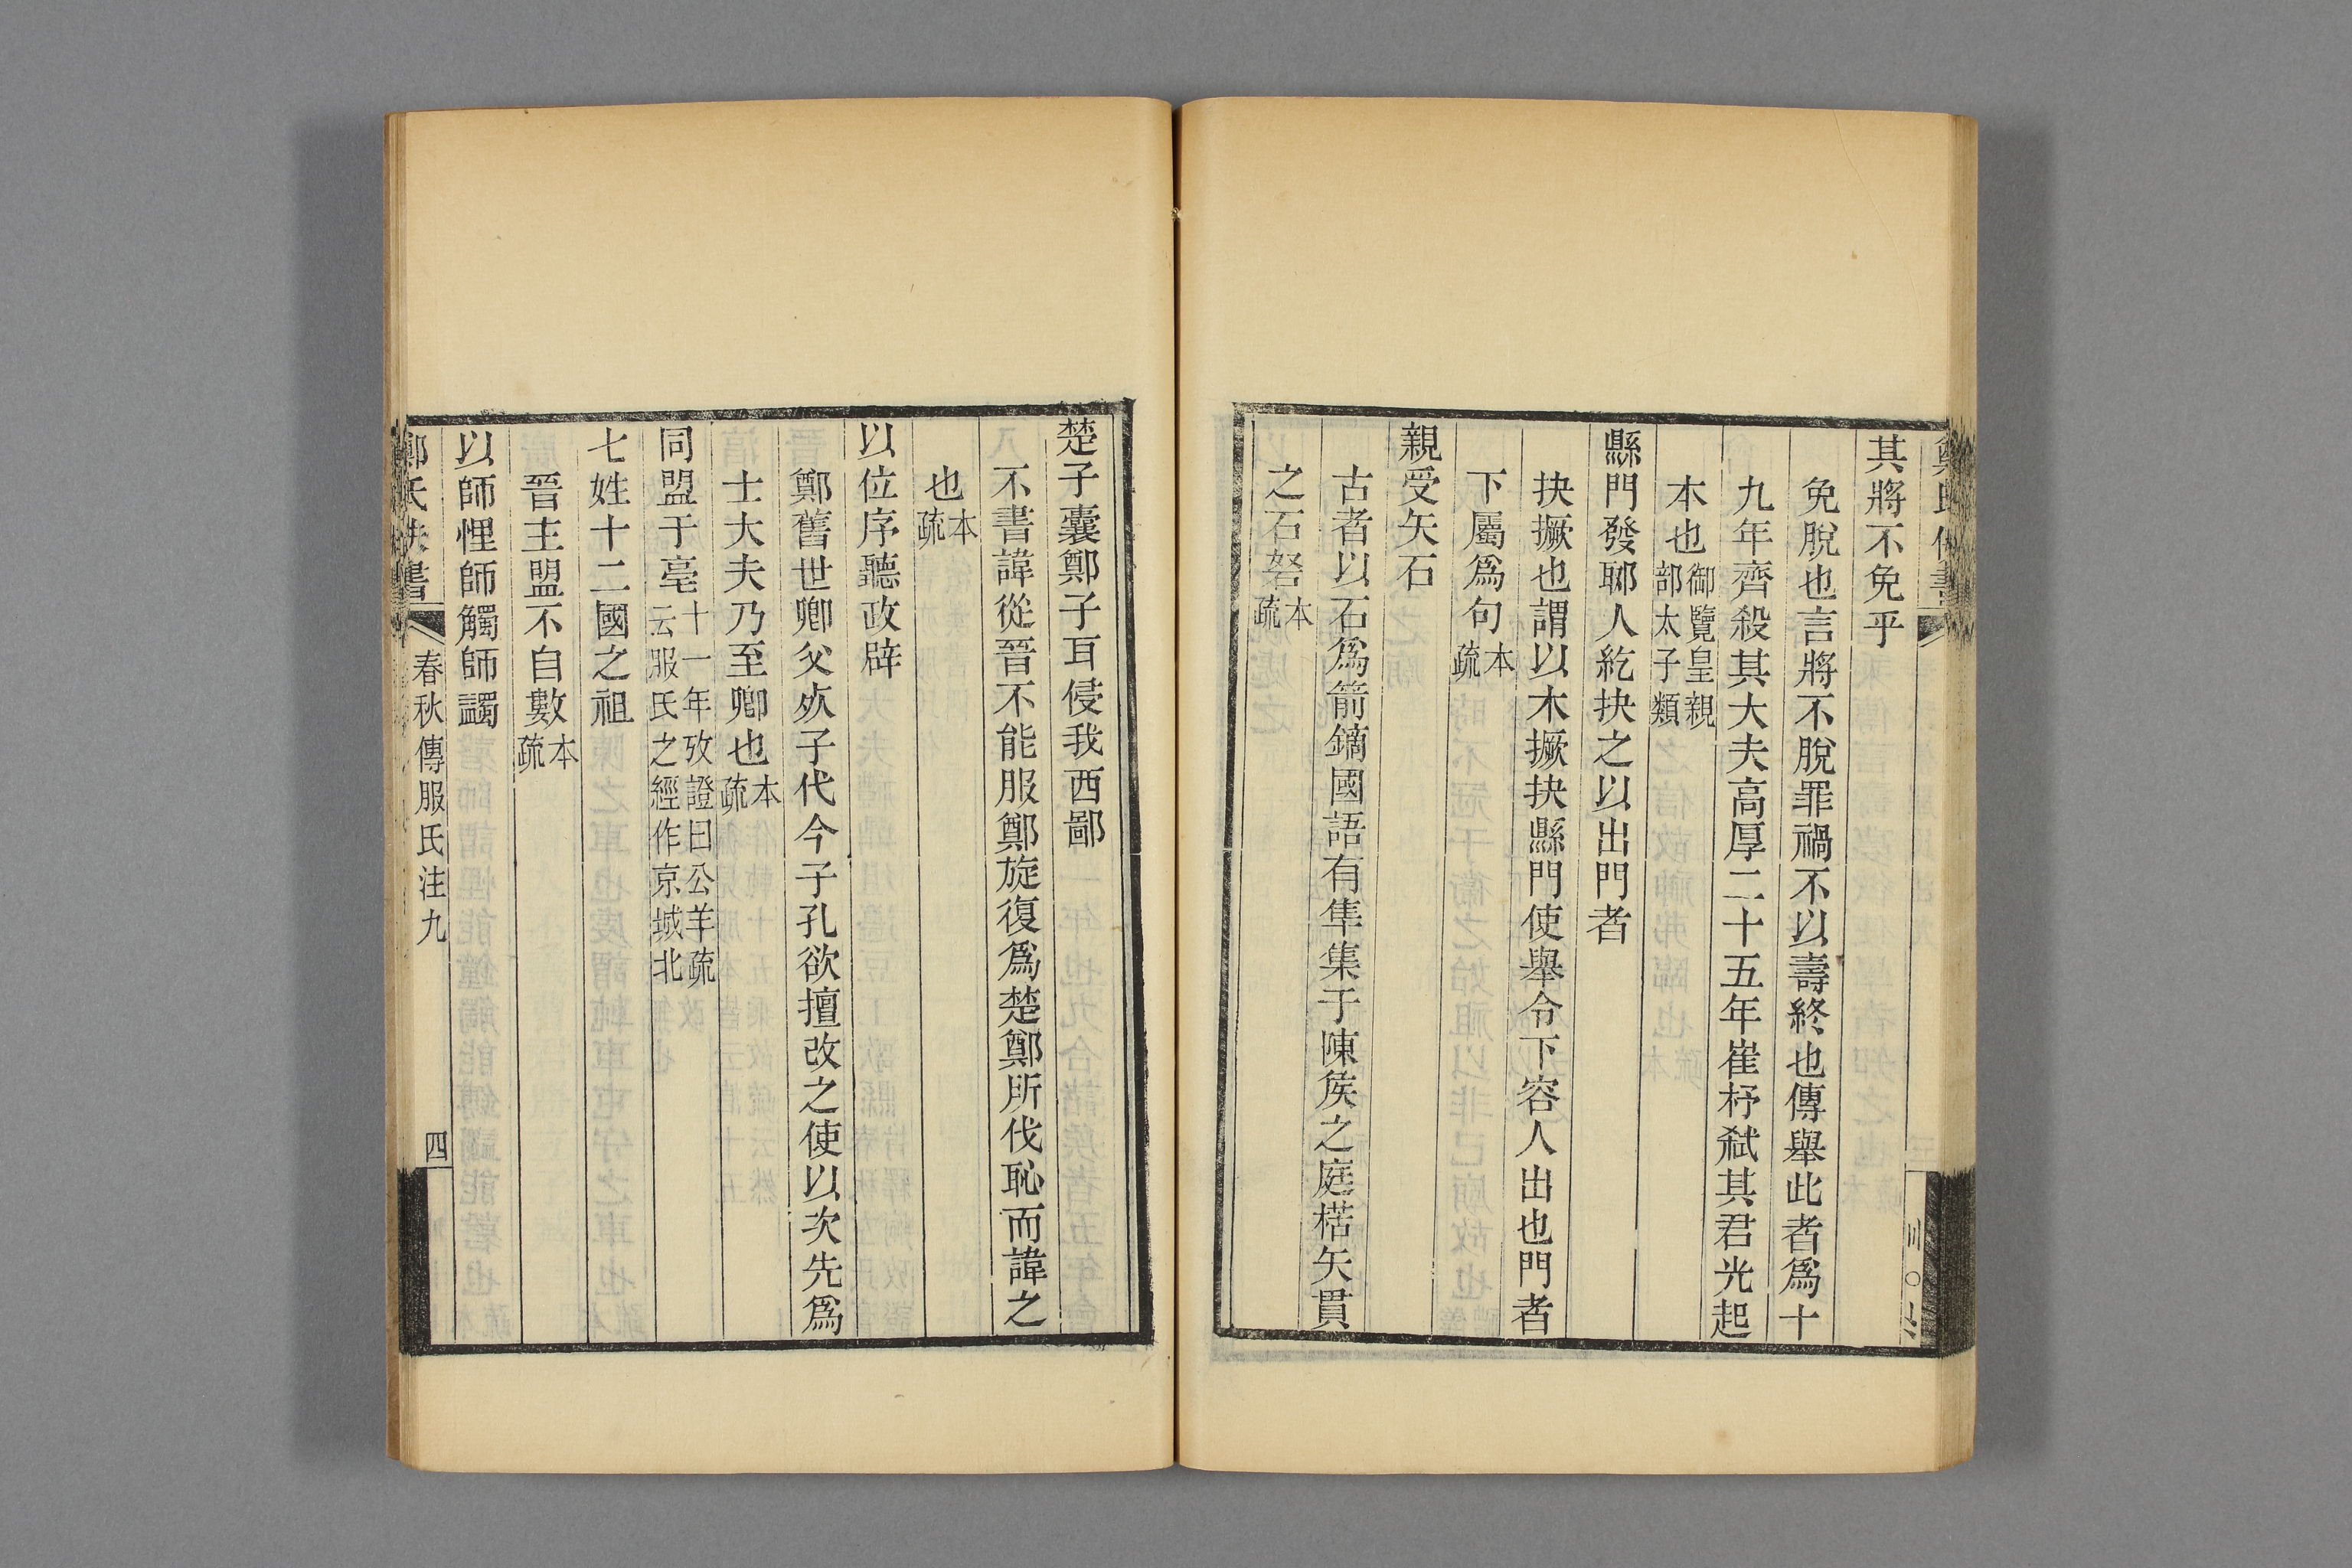 其將不免乎
免脫也言將不脫罪禍不以壽終也傳舉此者爲十
九年齊殺其大夫高厚二十五年崔杼弒其君光起
本也御覽皇親部太子類
縣門發郰人紇抉之以出門者
抉撅也謂以木撅抉縣門使舉令下容人出也門者
下屬爲句本疏
親受矢石
古者以石爲箭鏑國語有隼集于陳矦之庭楛矢貫
之石砮本疏
楚子囊鄭子耳侵我西鄙
不書諱從晉不能服鄭旋復爲楚鄭所伐恥而諱之
也本疏
以位序聽政辟
鄭舊世卿父死子代今子孔欲擅改之使以次先爲
士大夫乃至卿也本疏
同盟于亳十一年攷證曰公羊疏云服氏之經作京城北
七姓十二國之祖
晉主盟不自數本疏
以師悝師觸師蠲
春秋傳服氏注九
四